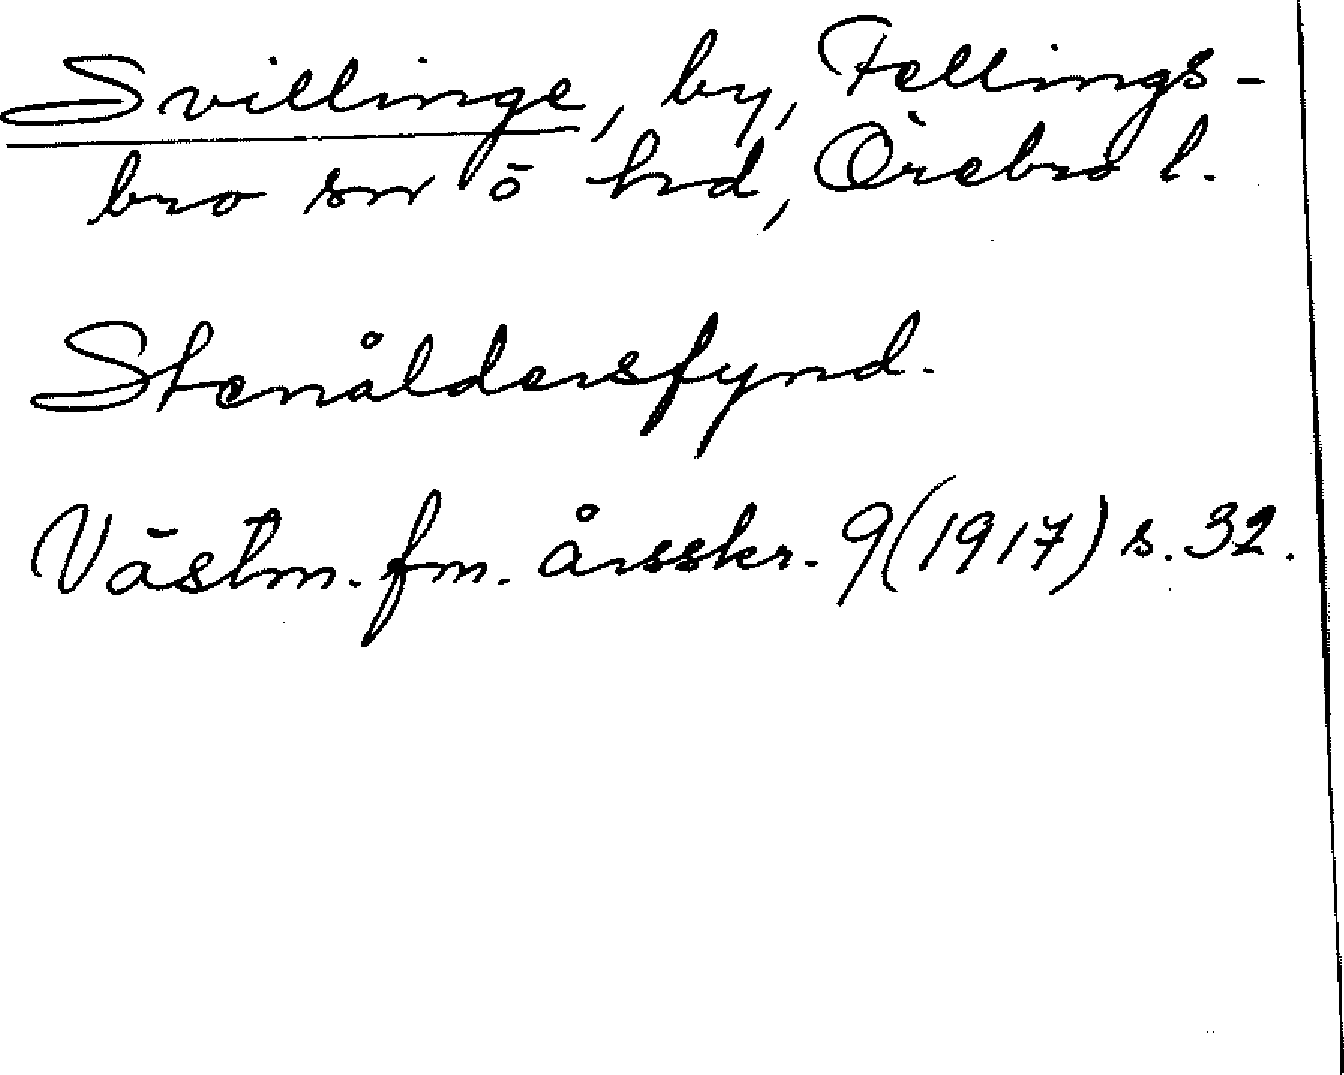 Svillinge, by, Fellings-
bro sn ö hd, Örebro l.
Stenåldersfynd.
Västm. fm. årsskr. 9 (1917) s. 32.